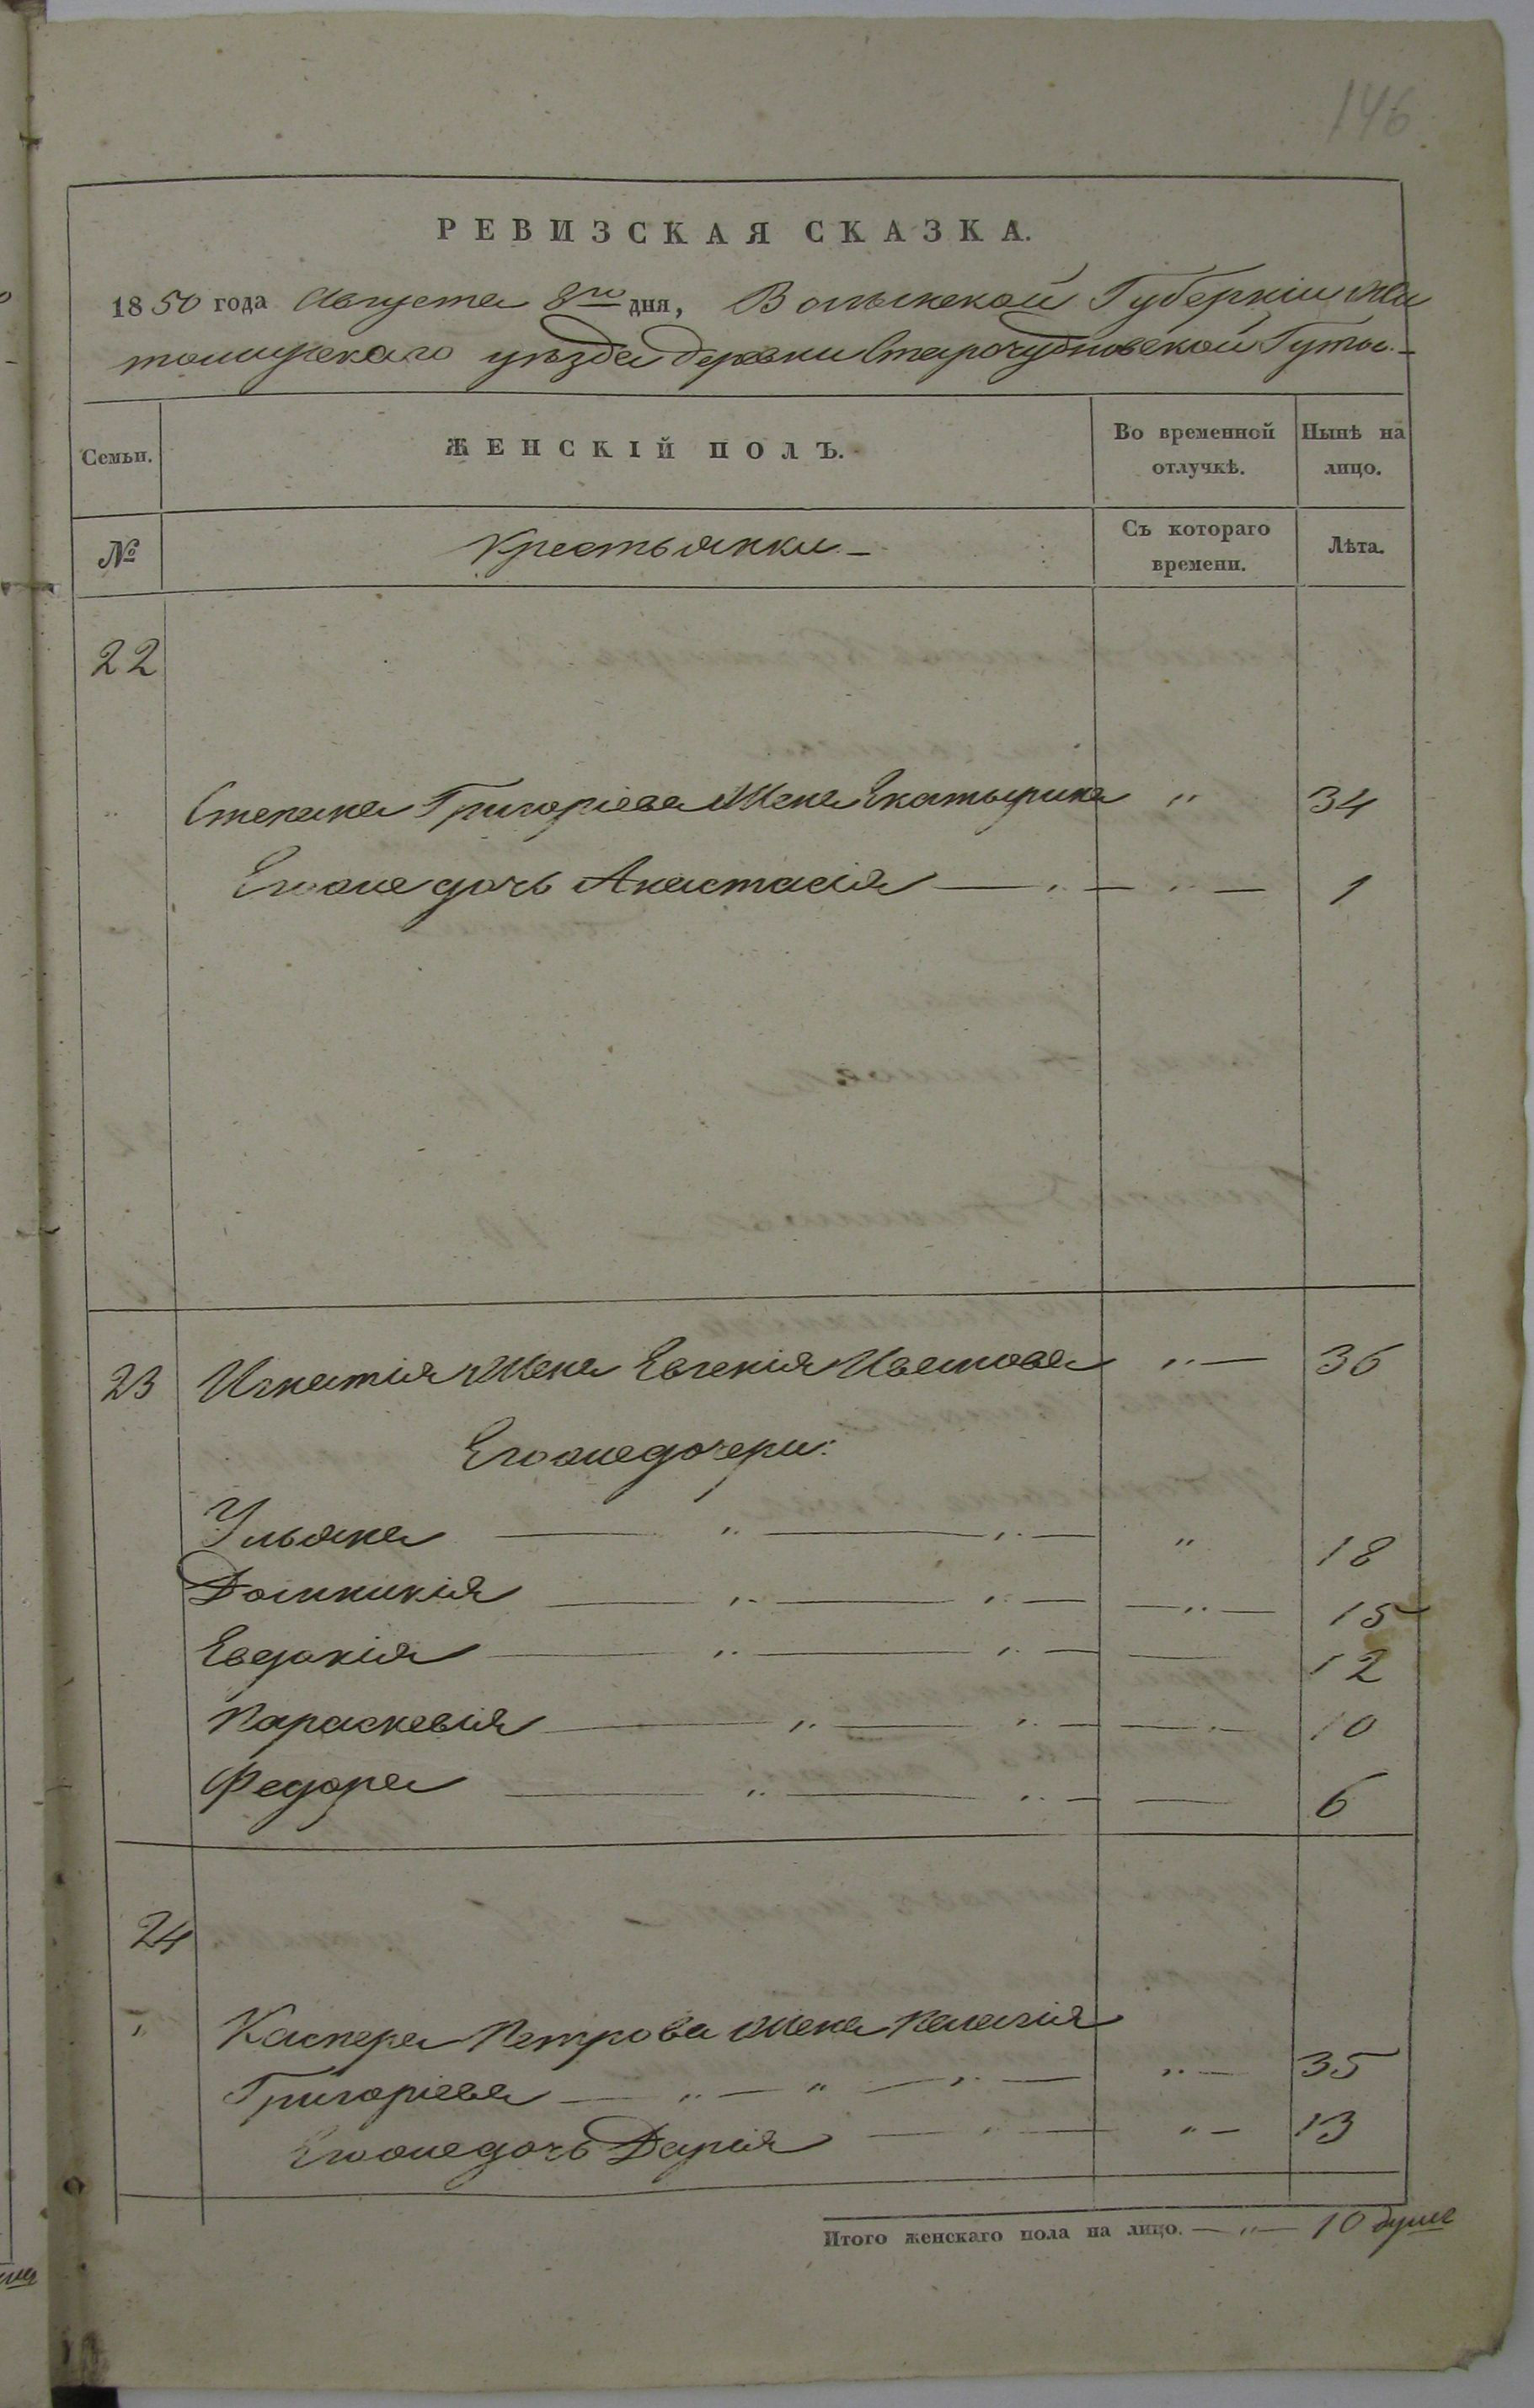 146
РЕВИЗСКАЯ СКАЗКА.
1850 года Августа 8го дня, Волынской Губерніи Жи
томирскаго уѣзда деревни Старочудновской Гуты.–
Семьи. ЖЕНСКІЙ ПОЛЪ. Во временной отлучкѣ. Нынѣ на лицо.
№ Крестьянки – Съ котораго времени. Лѣта.
22
Степана Григоріева Жена Екатырина „ 34
Егоже дочь Анастасія — „ — „ — 1
23 Игнатія Жена Евгенія Ивanова „ — 36
Егоже дочери:
Ульяна — „ — „ — „ 18
Домникія — „ — „ — — „ — 15
Евдокія — „ — „ — — 12
Параскевія — „ — „ — — 10
Федора — „ — „ — — 6
24
„ Каспера Петрова Жена Пелагія
Григоріева — „ — „ — „ — „ — 35
Егоже дочь Дарія — „ — „ — 13
Итого женскаго пола на лицо. — „ — 10 душъ